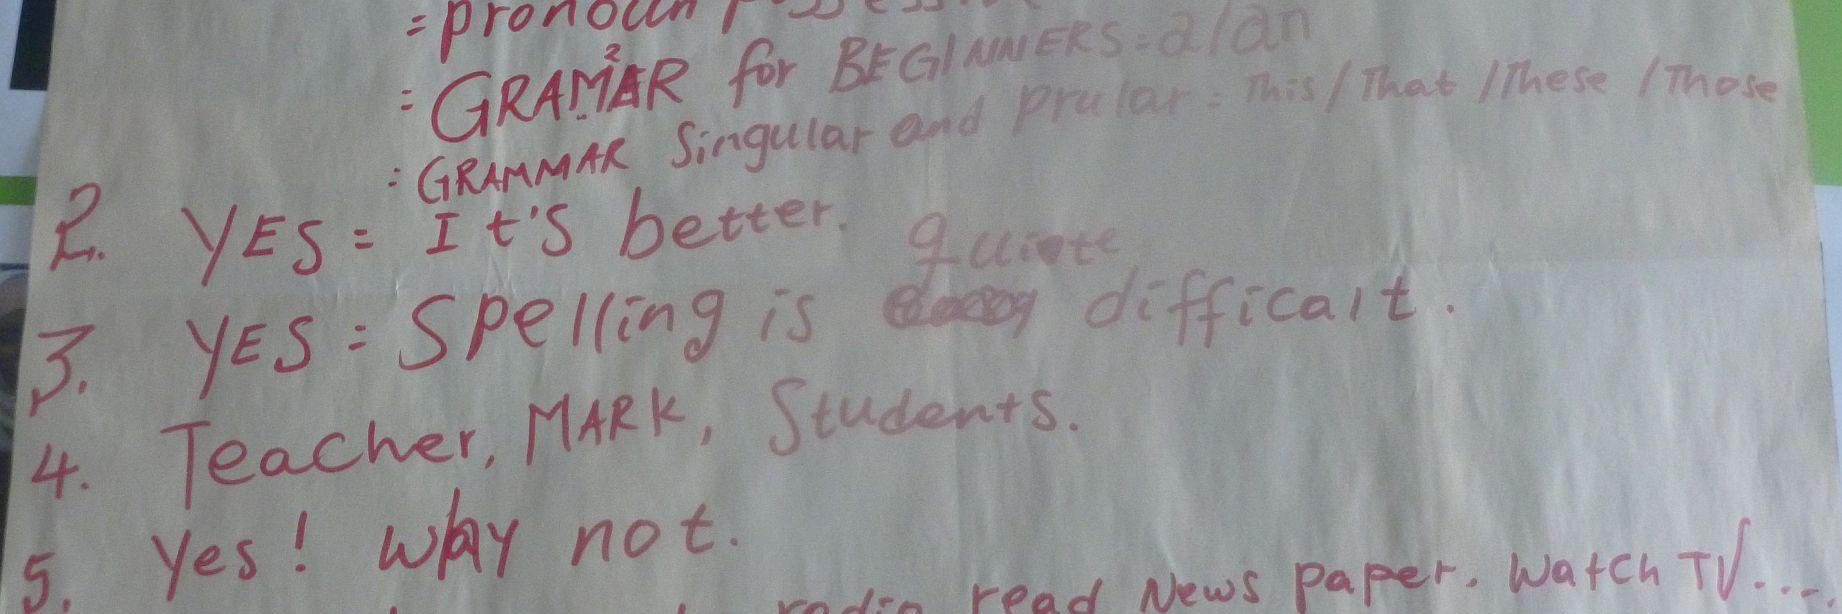 = pronoun
= GRAMMAR for BEGINNERS = a/an
= GRAMMAR Singular and prular = This / That / These / Those
2. YES = It's better.
quiote
3. YES = Spelling is difficalt.
4. Teacher, MARK, Students.
5. Yes! Why not.
radio read News paper. Watch TV....